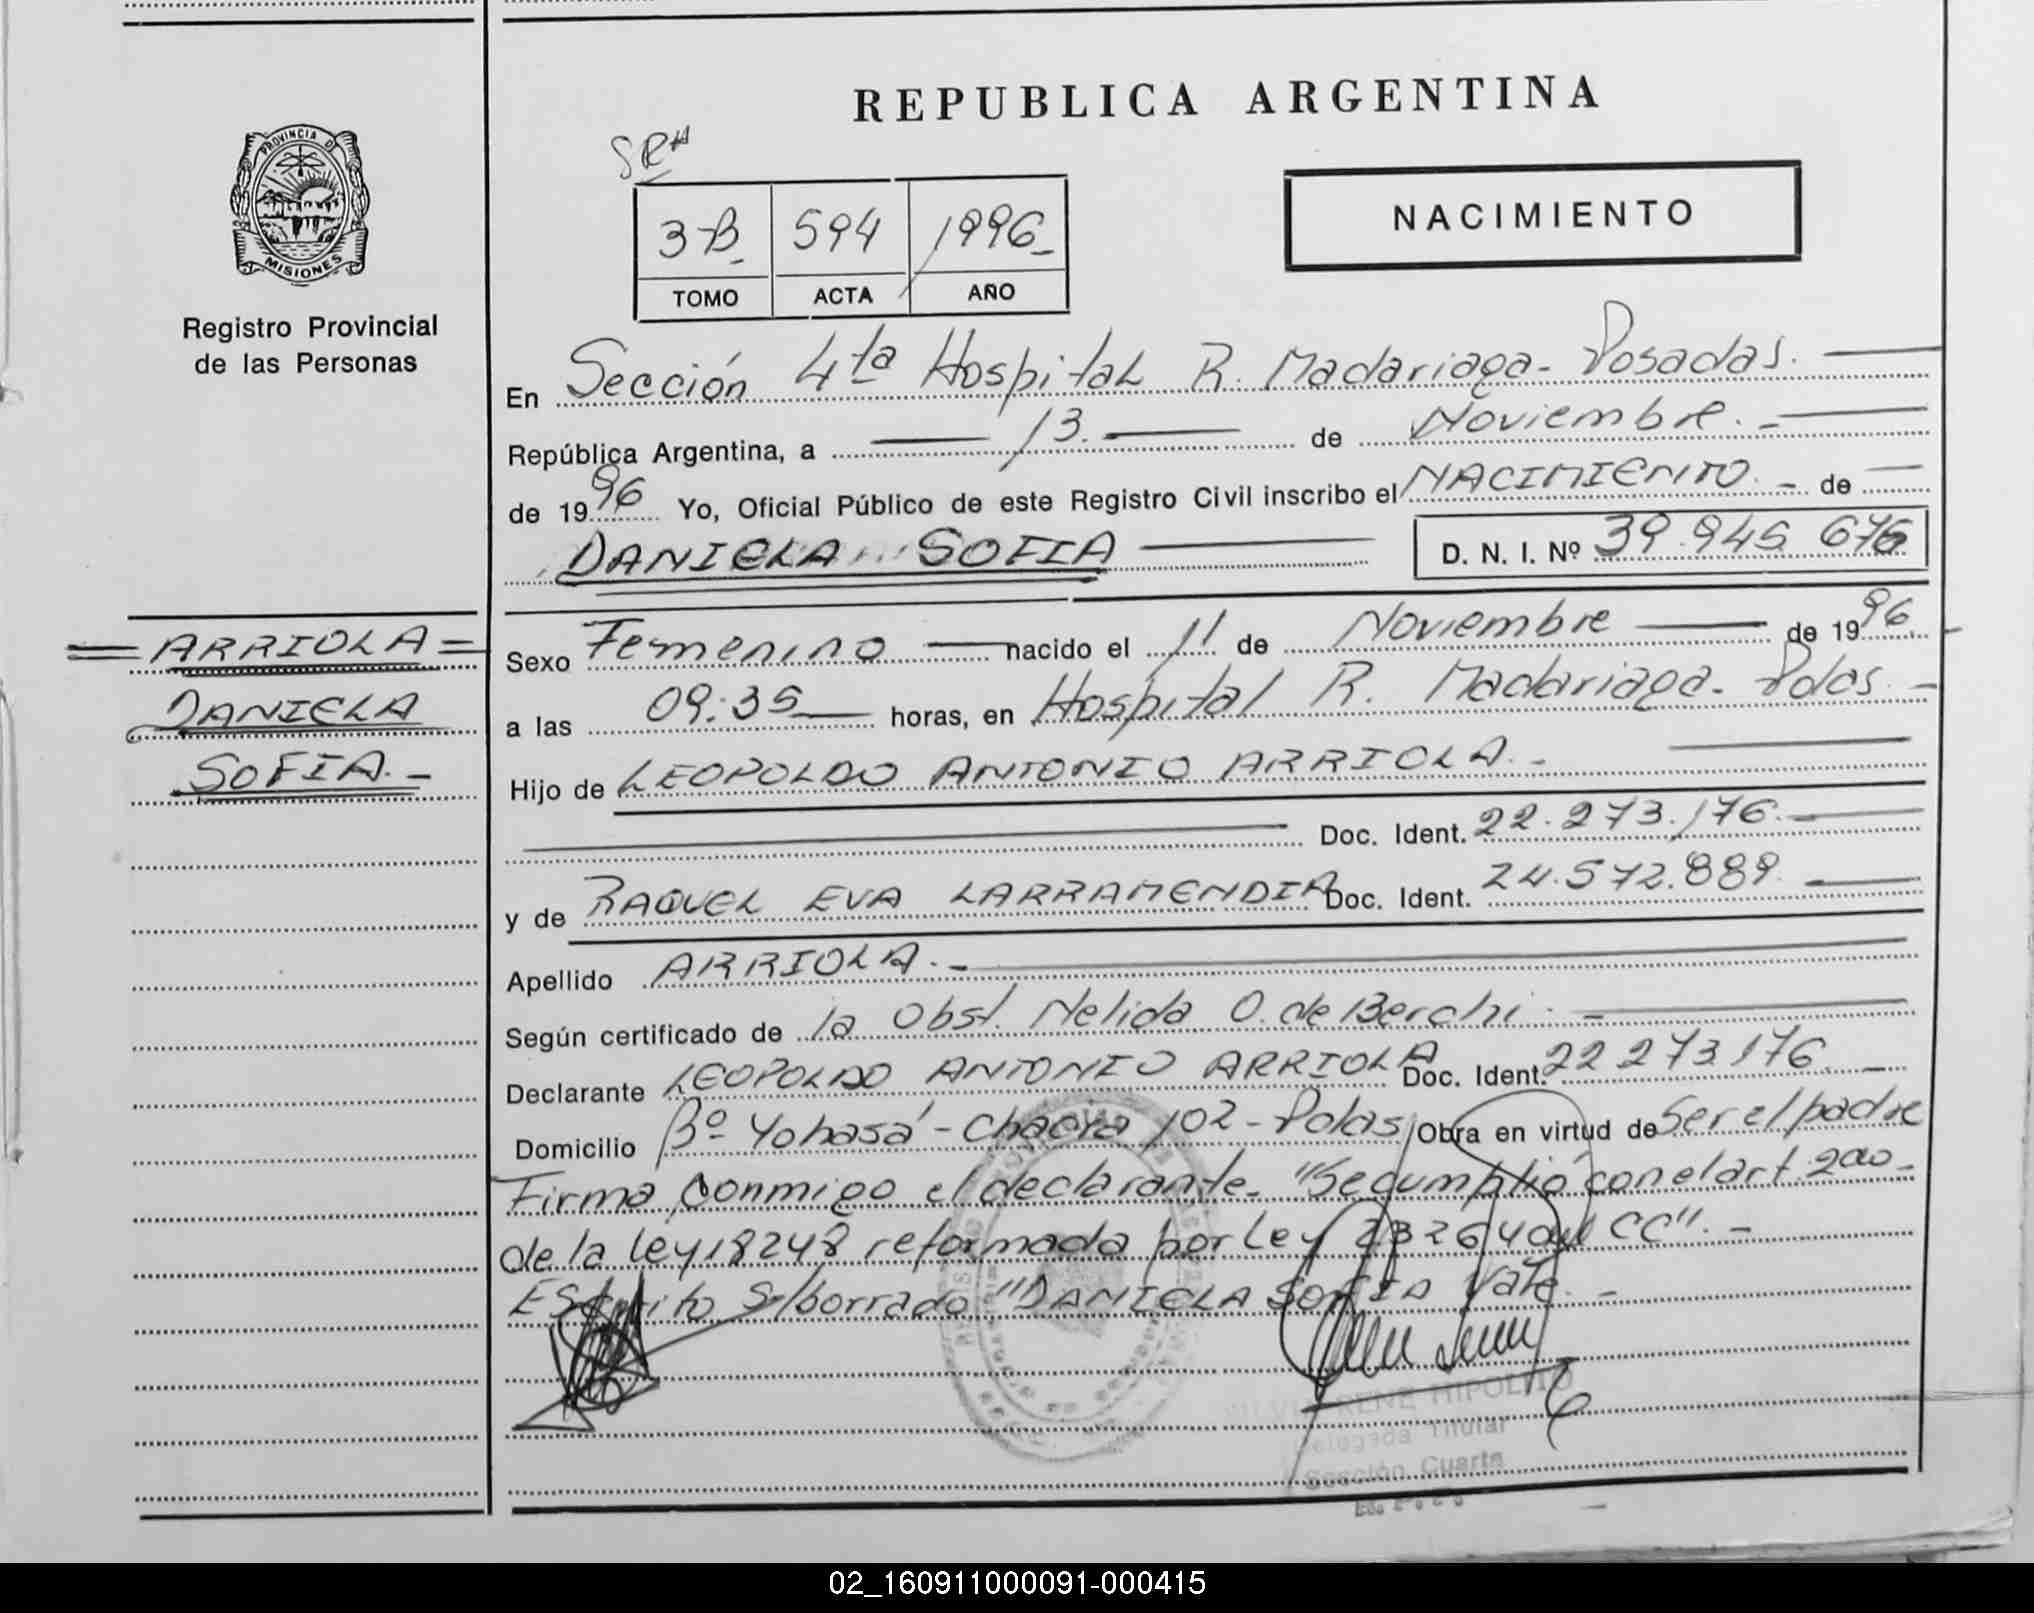 REPUBLICA ARGENTINA
PROVINCIA D
MISIONES
Registro Provincial
de las Personas
3-B
594
1996
TOMO
ACTA
AÑO
NACIMIENTO
En Sección 4ta Hospital R. Madariaga - Posadas.
República Argentina, a 13. de Noviembre.
de 1996 Yo, Oficial Público de este Registro Civil inscribo el NACIMIENTO. de
DANIELA SOFIA D. N. I. Nº 39.945 676
ARRIOLA
DANIELA
SOFIA.
Sexo Femenino nacido el 11 de Noviembre de 1996.
a las 09:35 horas, en Hospital R. Madariaga - Pdas.
Hijo de LEOPOLDO ANTONIO ARRIOLA.
Doc. Ident. 22.273.176.
y de RAQUEL EVA LARRAMENDIA Doc. Ident. 24.572.889.
Apellido ARRIOLA.
Según certificado de la Obst. Nelida O. de Berchi
Declarante LEOPOLDO ANTONIO ARRIOLA Doc. Ident. 22 273 176
Domicilio Bº Yohasá - Chacra 102 - Pdas Obra en virtud de Ser el padre
Firma conmigo el declarante. "Se cumplió con el art. 200
de la ley 18248 reformada por Ley 23264 del CC".
Escrito S/borrado "DANIELA SOFIA Vale.
IRENE HIPOLITO
Delegada Titular
Sección Cuarta
02_160911000091-000415